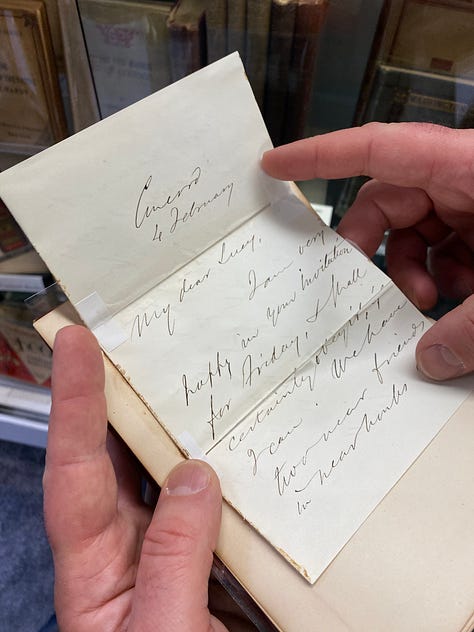 Concord
4 February
My dear Lucy,
I am very
happy in your invitation
for Friday, & shall
certainly obey it, if
I can. We have
two near friends
in near